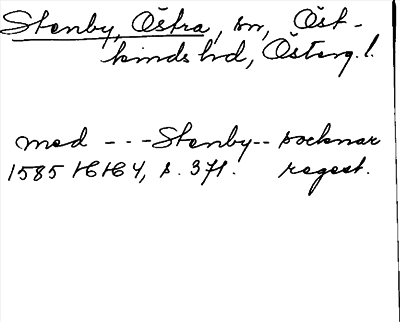 Stenby, Östra, sn, Öst-
kinds hd, Österg. l.
med - - - Stenby -- socknar
1585 HH 4, s. 371. regest.